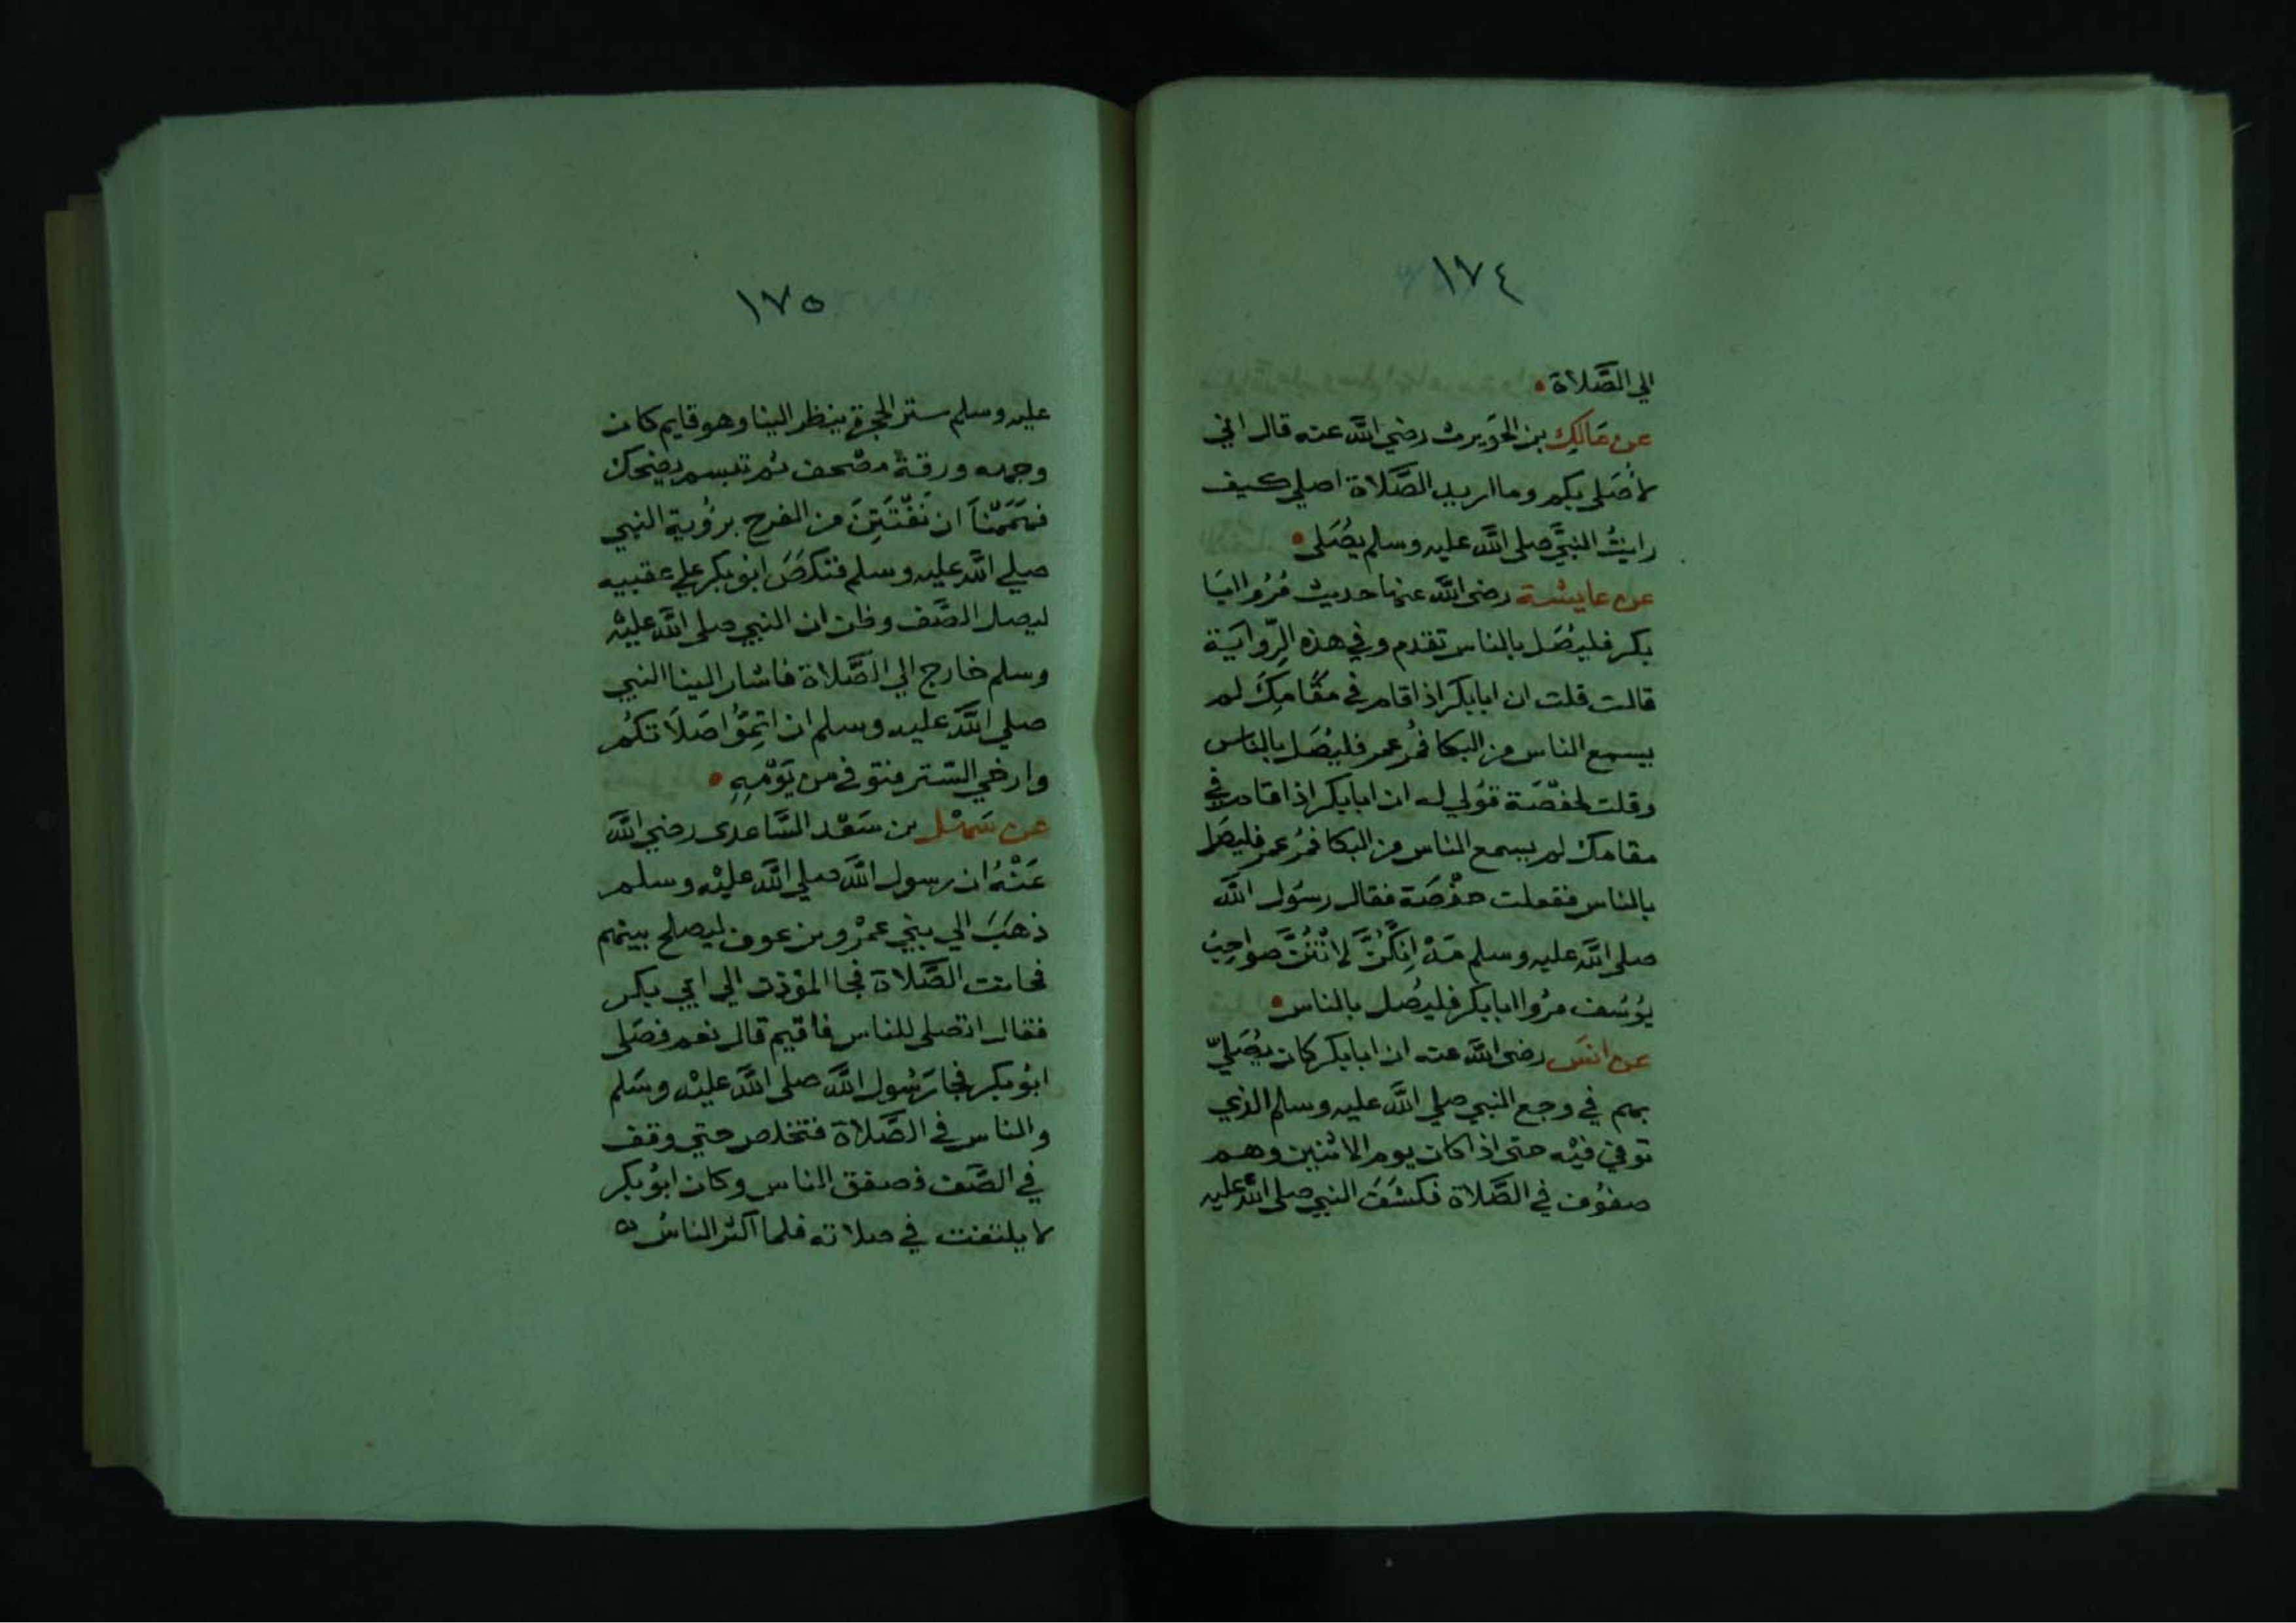 ١٧٤
الي الصَّلاة •
عن مَالِك بن الحَوَيرث رضي اللَّه عنه قال اني
لأُصَلي بكم وما اريد الصَّلاة اصلي كيف
رايتُ النبيَّ صلى اللَّه عليه وسلم يصُلى •
عن عايشة رضى اللَّه عنها حديث مُرُوا ابَا
بكر فليصَل بالناس تقدم وفي هذه الِرّوايَة
قالت قلت ان ابابكر اذا قام في مَقَامِكَ لم
يسمع الناس من البكا فمُر عمر فليصَل بالناس
وقلت لحفصَة قوُلي له ان ابابكر اذا قام في
مقامك لم يسمع الناس من البكا فمُر عمر فليصَل
بالناس ففعلت حفْصَة فقال رسوُل اللَّه
صلى اللَّه عليه وسلم مَهْ اِنكُنَّ لانْتُنَّ صَواحِبُ
يوُسُف مرُوا ابابكر فليُصل بالناس •
عن انسَ رضى اللَّه عنه ان ابابكر كان يصَُليّ
بهم في وجع النبي صلي اللَّه عليه وسلم الذي
توفي فيْه حتى اذا كان يوم الاثنين وهم
صفوُف في الصَّلاة فكشَفَ النبي صلى اللَّه عليه
١٧٥
عليه وسلم ستر الحجرة ينظر الينا وهو قايم كان
وجهه ورقة مصْحف ثم تبسم يضحك
فهَمَمْنَا ان نَفْتَتِنَ من الفرح برؤية النبي
صلي اللَّه عليه وسلم فنكصَ ابو بكر علي عقبيه
ليصل الصَّف وظن ان النبي صلى اللَّه عليْه
وسلم خارج الي الصَّلاة فاشار الينا النبي
صلي اللَّه عليه وسلم ان اتِمُّوا صَلاَتكُم
وارخي السّتر فتوفي من يَوْمِهِ •
عن سَهْل بن سَعْد السَّاعدى رضي اللَّه
عَنْهُ ان رسول اللَّه صلي اللَّه عليْه وسلم
ذهَبَ الي بني عمْرو بن عوف ليصلح بينهم
فحانت الصَّلاة فجا المؤذن الي ابي بكر
فقال اتصلى للناس فاقيم قال نعم فصَلى
ابوُ بكر فجا رَسُول اللَّه صلى اللَّه عليْه وسَلم
والناس في الصَّلاة فتخلص حتي وقف
في الصَّف فصفق الناس وكان ابوُ بكر
لا يلتفت في صلاته فلما اكثر الناسُ